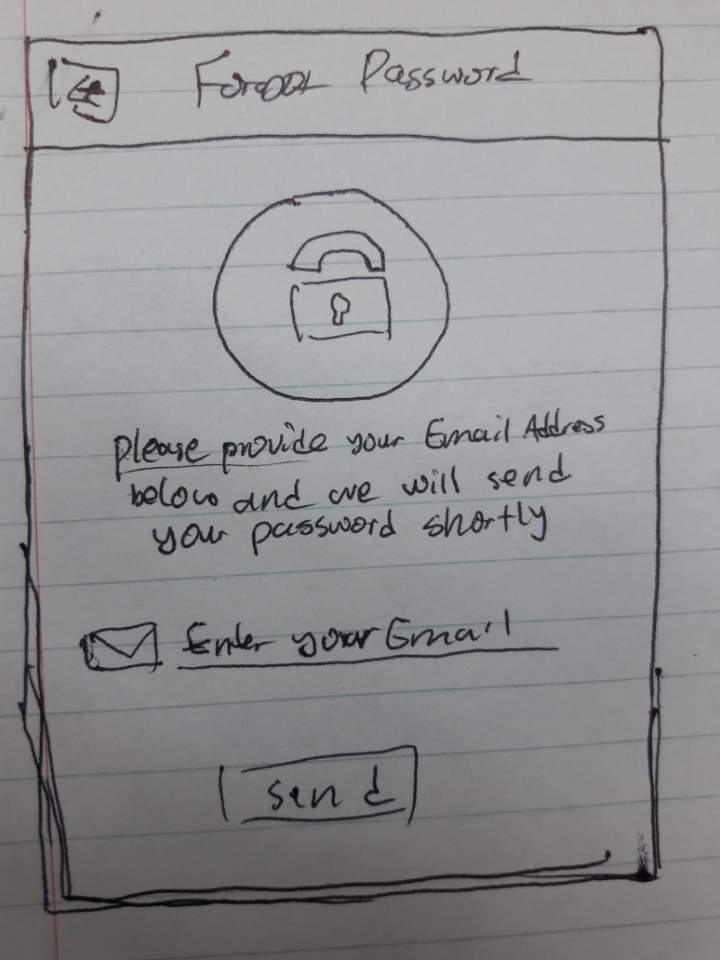 Forgot Password
Please provide your Email Address
below and we will send
your password shortly
Enter your Email
send